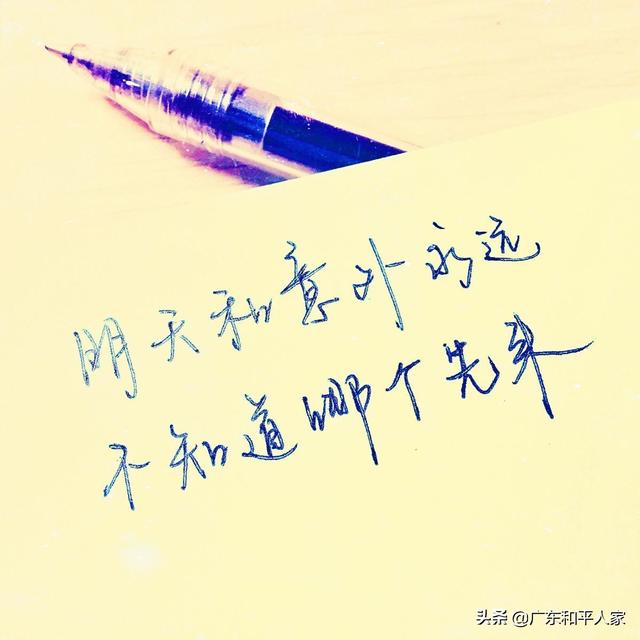 明天和意外永远
不知道哪个先来
头条 @广东和平人家